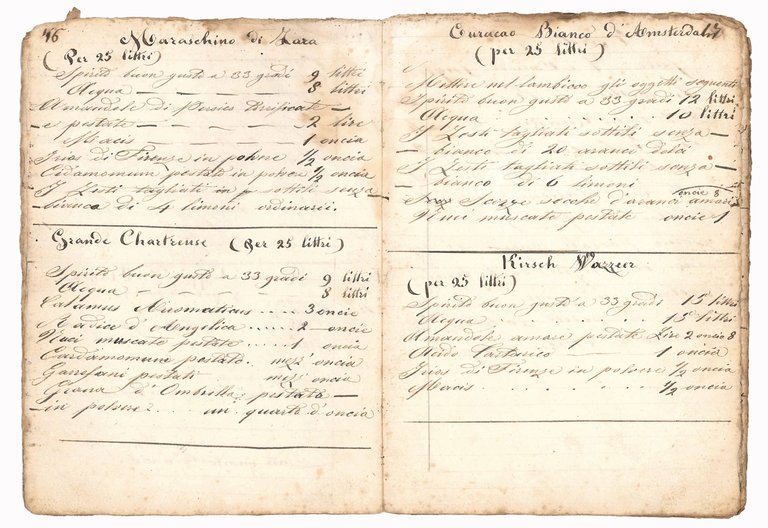 46
Maraschino di Zara
(Per 25 littri)
Spirito buon gusto a 33 gradi 9 littri
Acqua — — — — 8 littri
Amandole di Persico Purificate —
e pestate — — — — 2 lire
Macis — — — 1 oncia
Irios di Firenze in polvere 1/2 oncia
Cardamomum pestato in polvere 1/2 oncia
I Zesti tagliati in p sottili senza —
bianco di 4 limoni ordinarii.
Grande Chartreuse (Per 25 littri)
Spirito buon gusto a 33 gradi 9 littri
Acqua — — — — 8 littri
Calamus Auromaticus .... 3 oncie
Radice d'Angelica ..... 2 oncie
Nuci muscate pestate .... 1 oncia
Cardamomum pestato. mezz'oncia
Garrofani pestati . mez'oncia
Grana d'Ombrella pestata —
in polvere . . . un quarto d'oncia
17
Curacao Bianco d'Amsterdam
(per 25 littri)
Mettere nel lambicco gli oggetti seguenti
Spirito buon gusto a 33 gradi 12 littri
Acqua — — — — 10 littri
I Zesti tagliati sottili senza —
bianco di 20 aranci dolci
I Zesti tagliati sottili senza —
bianco di 6 limoni
Scorze secche d'aranci amari oncie 8
Nuci muscate pestate oncie 1
Kirsch Wazzer
(per 25 littri)
Spirito buon gusto a 33 gradi 15 littri
Acqua . . . . . . 15 littri
Amandole amare pestate Lire 2 oncie 8
Acido Tartarico . . . . 1 oncia
Irios di Firenze in polvere 1/2 oncia
Macis . . . . . . 1/2 oncia